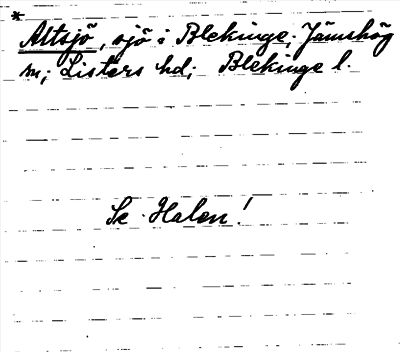 *
Altsjö, sjö i Blekinge; Jämshög
sn; Listers hd; Blekinge l.
Se Halen!